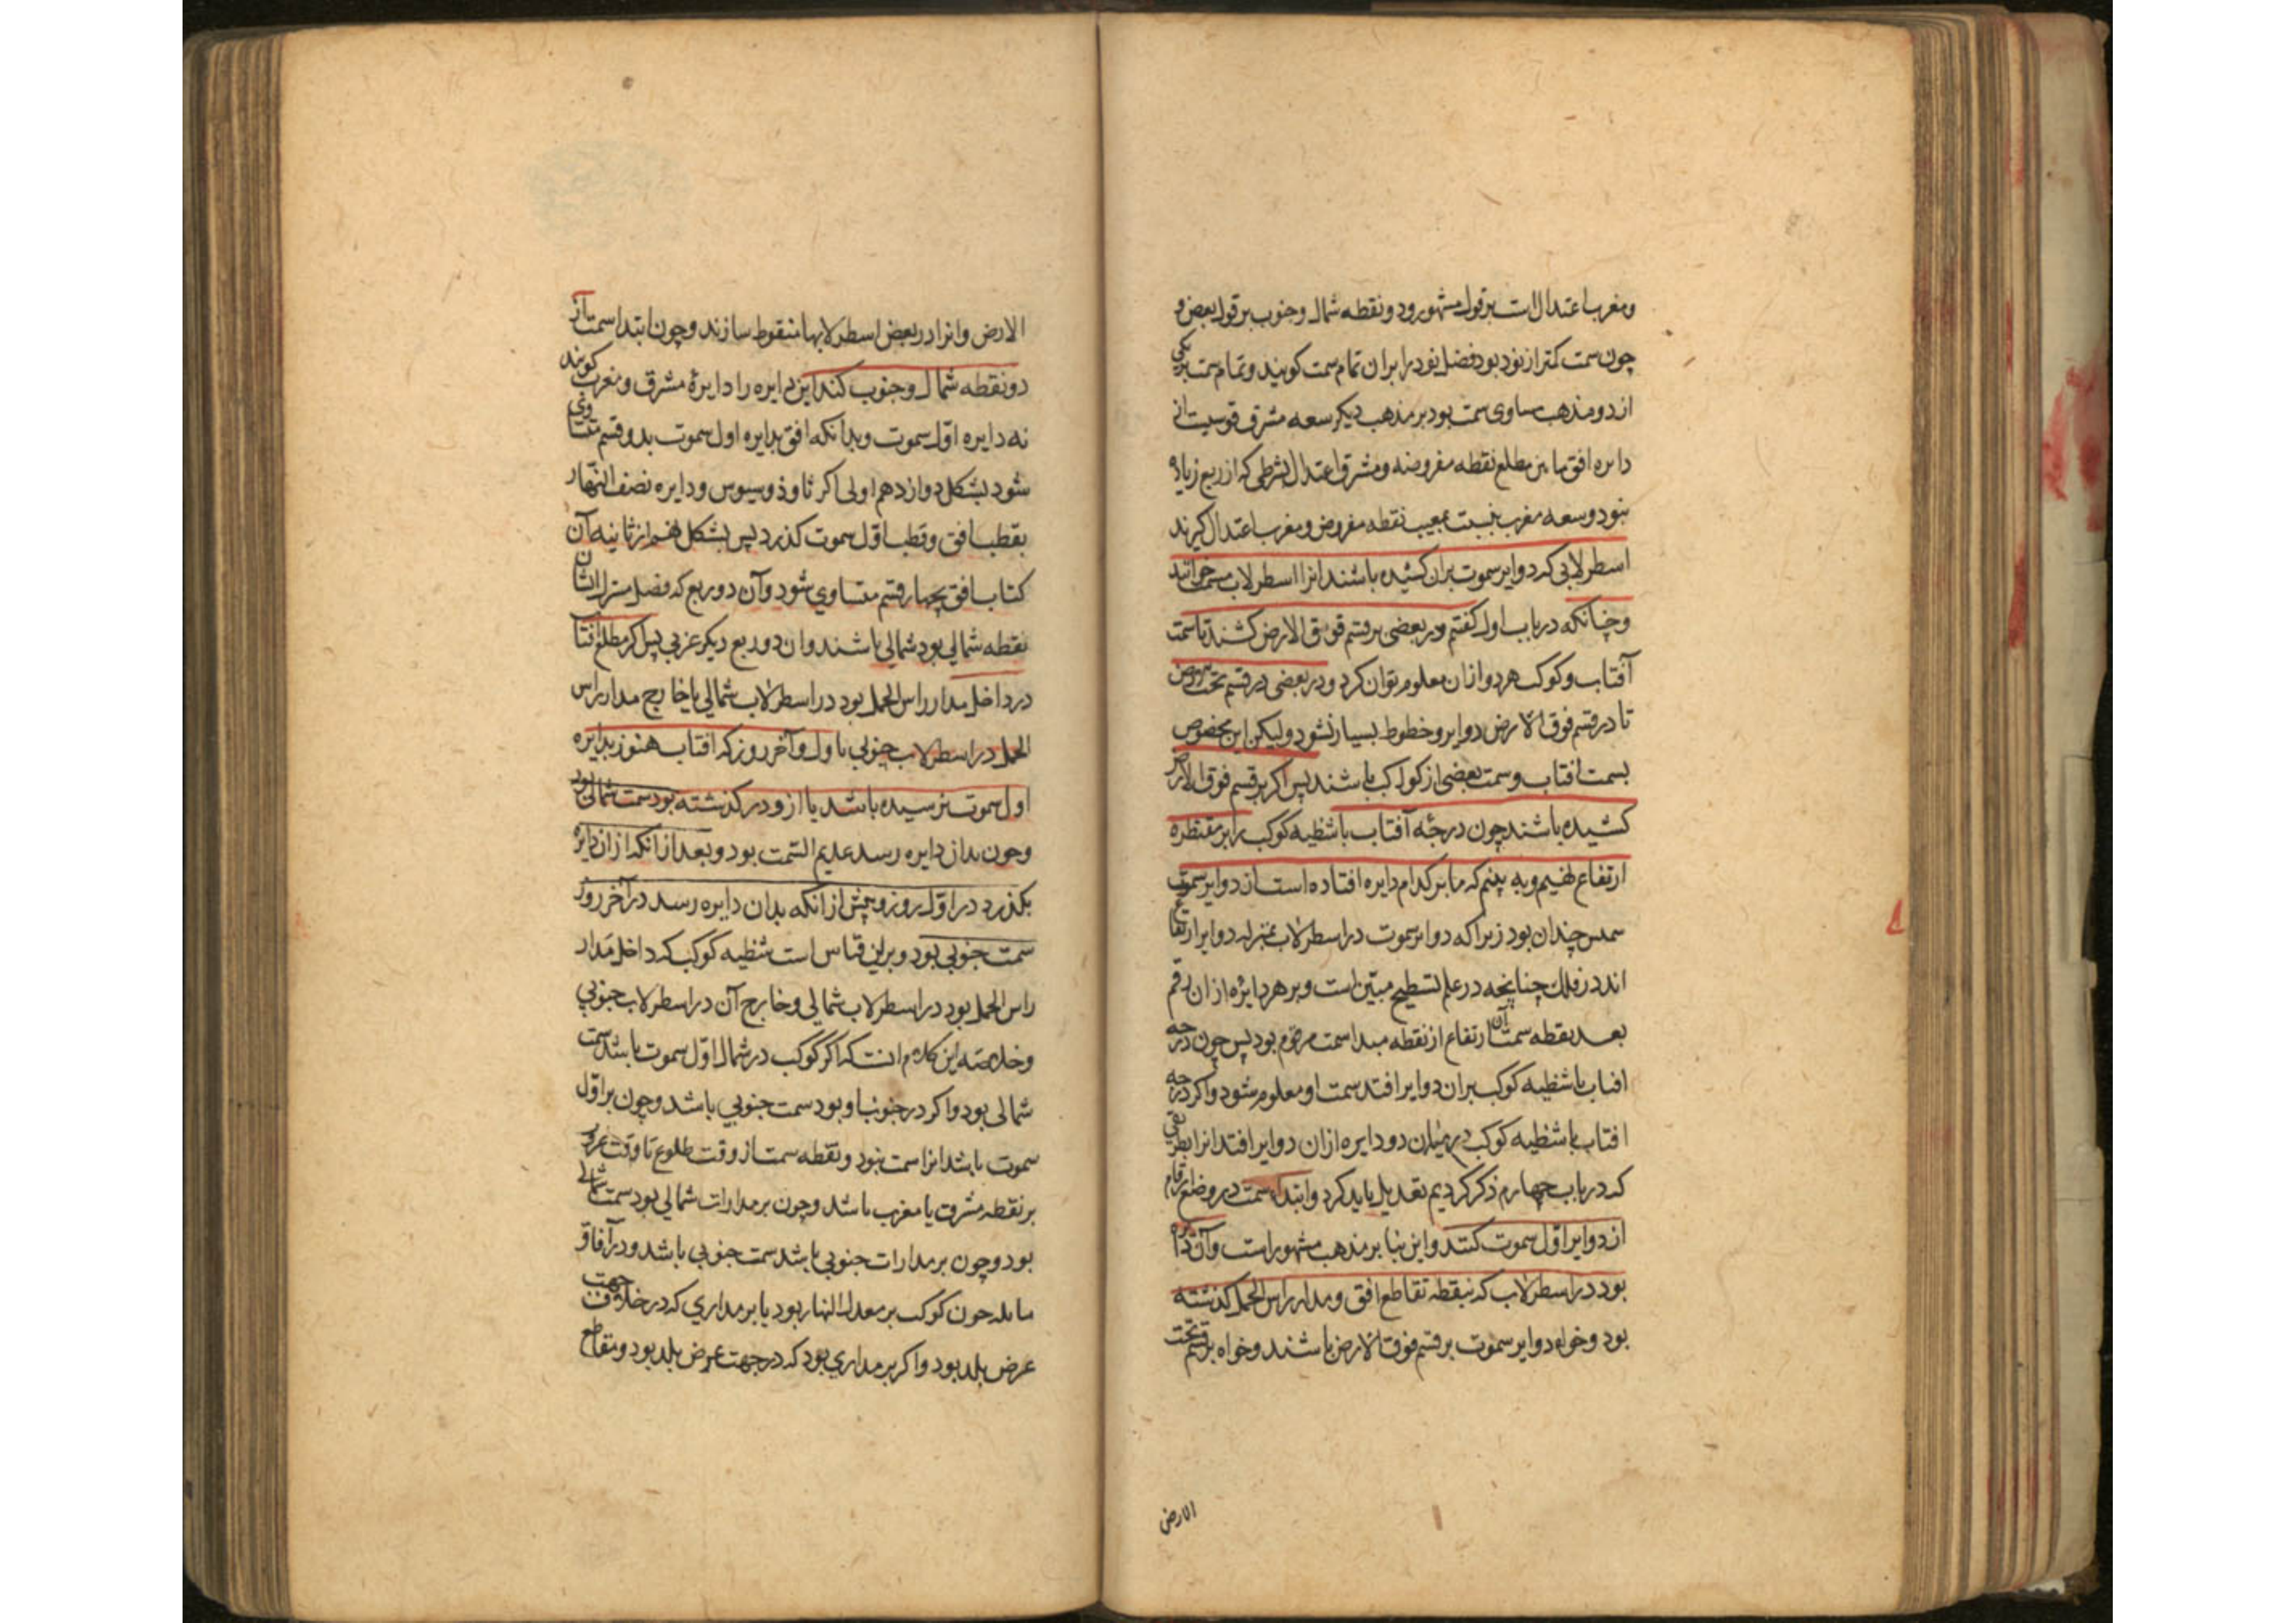 ومغرب اعتدال است بر قول مشهور ودو نقطه شمال وجنوب بر قول بعضی و
چون سمت کمتر از نود بود فضل نود را بران تمام سمت کویند وتمام سمت بر یکی
از دو مذهب مساوی سمت بود بر مذهب دیکر سعه مشرق قوسیست از
دایره افق مابین مطلع نقطه مفروضه ومشرق اعتدال بشرطی که از ربع زیاده
نبود وسعه مغرب بنسبت بمغیب نقطه مفروض ومغرب اعتدال کیرند
اسطرلابی که دوایر سموت بران کشیده باشند انرا اسطرلاب مسمت خوانند
وچنانکه در باب اول کفتیم در بعضی بر قسم فوق الارض کشند تا سمت
آفتاب وکوکب هر دو ازان معلوم توان کرد ودر بعضی در قسم تحت الارض
تا در قسم فوق الارض دوایر وخطوط بسیار نشود ولیکن این مخصوص
بسمت افتاب وسمت بعضی از کواکب باشند پس اکر بر قسم فوق الارض
کشیده باشند چون درجه آفتاب یا شظیه کوکب را بر مقنطره
ارتفاع نهیم وبه بینم که ما بر کدام دایره افتاده است از دوایر سموت
سمتش چندان بود زیرا که دوایر سموت در اسطرلاب بمنزله دوایر ارتفاع
اند در فلک چنانچه در علم تسطیح مبین است وبر هر دایره ازان رقم
بعد نقطه سمت آن ارتفاع از نقطه مبدا سمت مرقوم بود پس چون درجه
افتاب یا شظیه کوکب بران دوایر افتد سمت او معلوم شود واکر درجه
افتاب یا شظیه کوکب در میان دو دایره ازان دوایر افتد انرا بطریقی
که در باب چهارم ذکر کردیم تعدیل باید کرد وابتداء سمت در وضع ارقام
از دوایر اول سموت کنند واین بنا بر مذهب مشهور است وآن دایره
بود در اسطرلاب که بنقطه تقاطع افق ومدار راس الحمل کذشته
بود وخواه دوایر سموت بر قسم فوق الارض باشند وخواه بر قسم تحت
الارض
الارض وانرا در بعض اسطرلابها منقوط سازند وچون ابتدا سمت از
دو نقطه شمال وجنوب کنند این دایره را دایرۀ مشرق ومغرب کویند
نه دایره اول سموت وبدانکه افق بدایره اول سموت بدو قسم متساوی
شود بشکل دوازدهم اولی اکر ثاوذوسیوس ودایره نصف النهار
بقطب افق وقطب اول سموت کذرد پس بشکل نهم از ثانیه آن
کتاب افق بچهار قسم متساوی شود وآن دو ربع که فصل مشترک ایشان
نقطه شمالی بود شمالی باشند وان دو ربع دیکر پس اکر مطلع افتاب
در داخل مدار راس الحمل بود در اسطرلاب شمالی یا خارج مدار راس
الحمل در اسطرلاب جنوبی با اول وآخر روز که افتاب هنوز بدایره
اول سموت نرسیده باشد یا ازو در کذشته بود سمت شمالی بود
وچون بدان دایره رسد عدیم السمت بود وبعد ازانکه ازان دایره
بکذرد در اول روز وپیش از آنکه بدان دایره رسد در آخر روز
سمت جنوبی بود وبرین قیاس است شظیه کوکب که داخل مدار
راس الحمل بود در اسطرلاب شمالی وخارج آن در اسطرلاب جنوبی
وخلاصه این کلام انست که اکر کوکب در شمال اول سموت باشد سمت
شمالی بود واکر در جنوب او بود سمت جنوبی باشد وچون بر اول
سموت باشد انرا سمت نبود ونقطه سمت از وقت طلوع تا وقت غروب
بر نقطه مشرق یا مغرب باشد وچون بر مدارات شمالی بود سمت شمالی
بود وچون بر مدارات جنوبی باشد سمت جنوبی باشد ودر آفاق
مایله چون کوکب بر معدل النهار بود یا بر مداری که در خلاف جهت
عرض بلد بود واکر بر مداری بود که در جهت عرض بلد بود ومقاطع